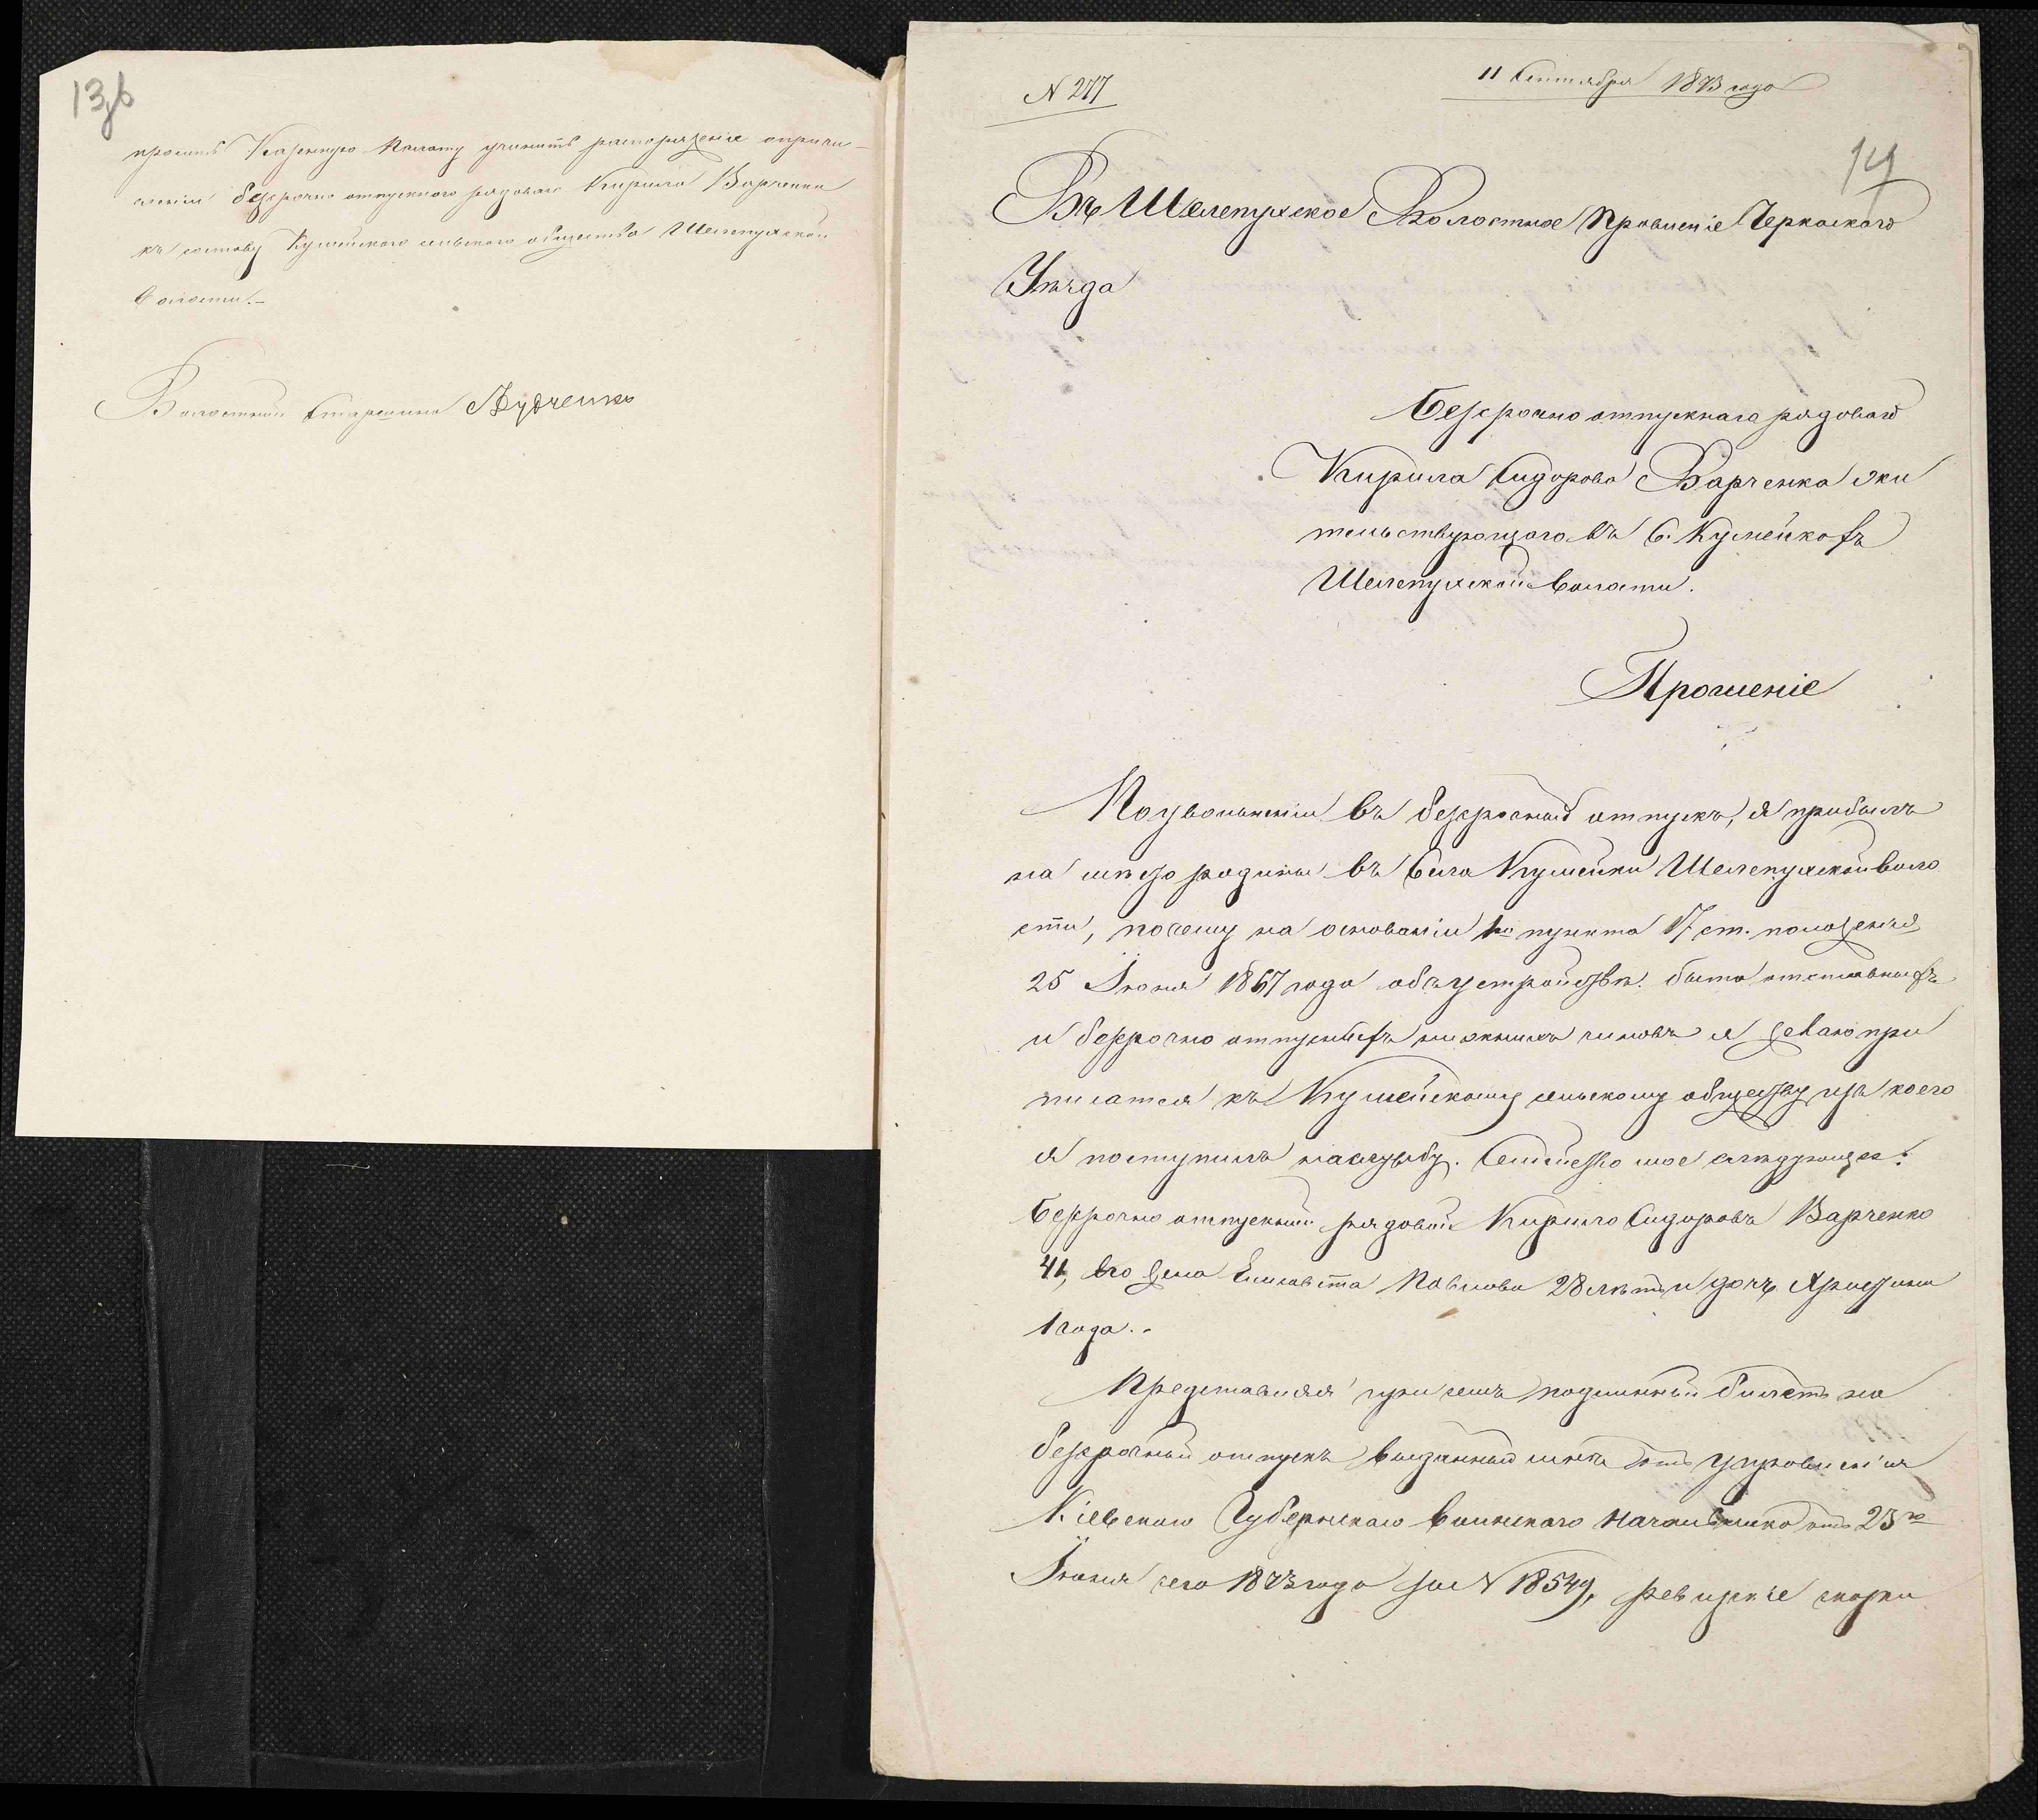 13зв
проситъ Казенную Палату учинить распоряженіе опричи-
сленіи безсрочно отпускного рядоваго Кирила Варченка
къ составу Кумейского сельского общества Шелепухской
волости.-
Волостной Старшина
N 277
11 Сентября 1873 года
14
Въ Шелепухское Волостное Правленіе Черкаского
Уезда
Безсрочно отпускнаго рядоваго
Кирила Сидорова Варченка жи
тельствующаго въ С. Кумейкахъ
Шелепухской волости.
Прошеніе
По увольненіи въ безсрочный отпускъ, я прибылъ
на место родины въ Село Кумейки Шелепухской воло
сти, почему на основаніи 1го пункта 17 ст. положенія
25 Іюня 1867 года объ устройстве быта отставныхъ
и безсрочно отпускныхъ нижнихъ чиновъ я желаю при
писатся къ Кумейскому сельскому обществу изъ коего
я поступилъ на службу. Семейство мое следующее:
безсрочно отпускний рядовой Кирило Сидоровъ Варченко
41, его жена Елисавета Павлова 28 летъ и дочь
1 года.-
Представляя при семъ подлинный билетъ на
безсрочный отпускъ выданный мне отъ управленія
Кіевскаго Губернскаго воинскаго Начальника отъ 25го
Іюня сего 1873 года за N 18549, ревизкіе скорки